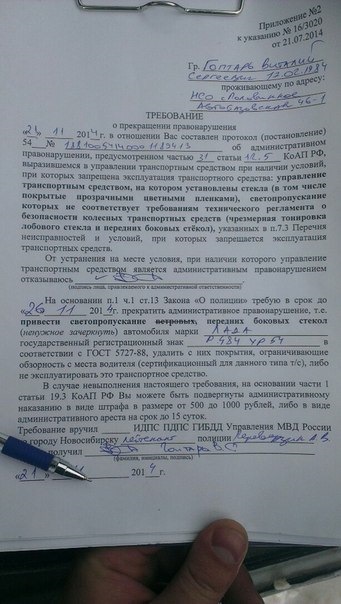 Приложение №2
к указанию № 16/3020
от 21.07.2014
Гр. Гоптарь Виталий
Сергеевич 17.02.1984
проживающему по адресу:
НСО
46-1
ТРЕБОВАНИЕ
о прекращении правонарушения
«21» 11 2014 г. в отношении Вас составлен протокол (постановление)
54 № об административном
правонарушении, предусмотренном частью 31 статьи 12.5 КоАП РФ,
выразившемся в управлении транспортным средством при наличии условий,
при которых запрещена эксплуатация транспортного средства: управление
транспортным средством, на котором установлены стекла (в том числе
покрытые прозрачными цветными пленками), светопропускание
которых не соответствует требованиям технического регламента о
безопасности колесных транспортных средств (чрезмерная тонировка
лобового стекла и передних боковых стёкол), указанных в п.7.3 Перечня
неисправностей и условий, при которых запрещается эксплуатация
транспортных средств.
От устранения на месте условия, при наличии которого управление
транспортным средством является административным правонарушением
отказываюсь
(подпись лица, привлекаемого к административной ответственности)
На основании п.1 ч.1 ст.13 Закона «О полиции» требую в срок до
«26» 11 2014 г. прекратить административное правонарушение, т.е.
привести светопропускание ветровых, передних боковых стекол
(ненужное зачеркнуть) автомобиля марки ЛАДА
государственный регистрационный знак Р484УР54 в
соответствии с ГОСТ 5727-88, удалить с них покрытия, ограничивающие
обзорность с места водителя (сертификационный для данного типа т/с), либо
не эксплуатировать это транспортное средство.
В случае невыполнения настоящего требования, на основании части 1
статьи 19.3 КоАП РФ Вы можете быть подвергнуты административному
наказанию в виде штрафа в размере от 500 до 1000 рублей, либо в виде
административного ареста на срок до 15 суток.
Требование вручил ИДПС ПДПС ГИБДД Управления МВД России
по городу Новосибирску лейтенант полиции
получил Гоптарь В.С.
(фамилия, инициалы, подпись)
«21» 2014 г.